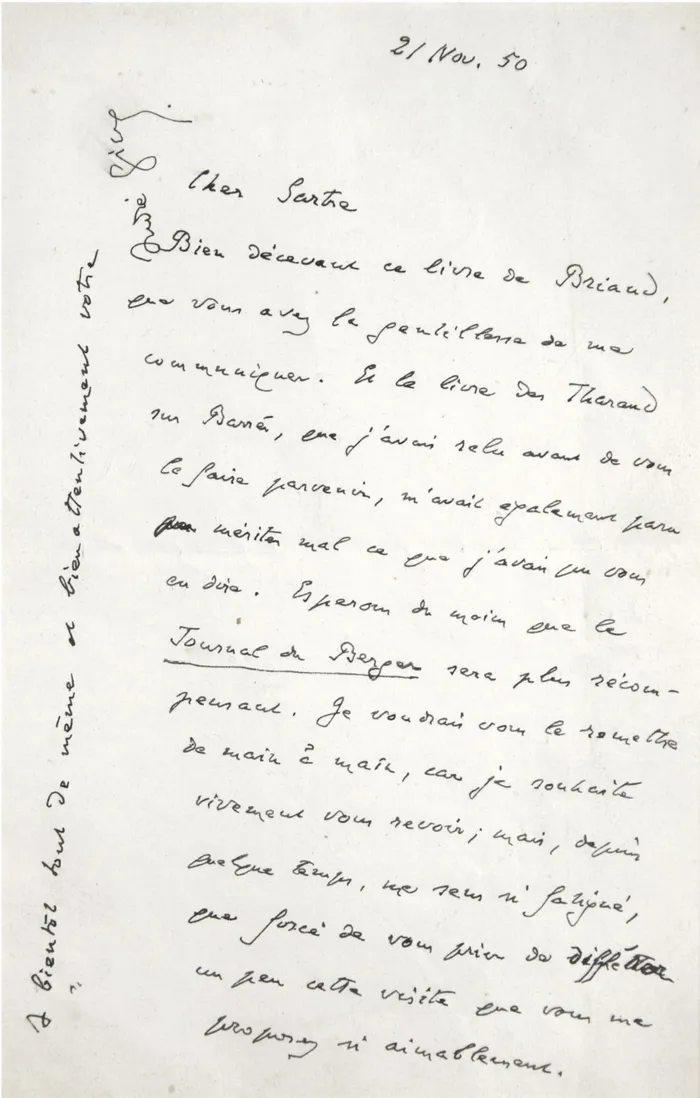 21 Nov. 50
Cher Sartre
Bien décevant ce livre de Briand,
que vous avez la gentillesse de me
communiquer. Et le livre des Tharaud
sur Barrès, que j'avais relu avant de vous
le faire parvenir, m'avait également paru
mériter mal ce que j'avais pu vous
en dire. Esperons du moins que le
Journal du Berger sera plus récom-
pensant. Je voudrais vous le remettre
de main à main, car je souhaite
vivement vous revoir; mais, depuis
quelque temps, me sens si fatigué,
que forcé de vous prier de différer
un peu cette visite que vous me
proposez si aimablement.
A bientôt tout de même et bien attentivement votre
André Gide.